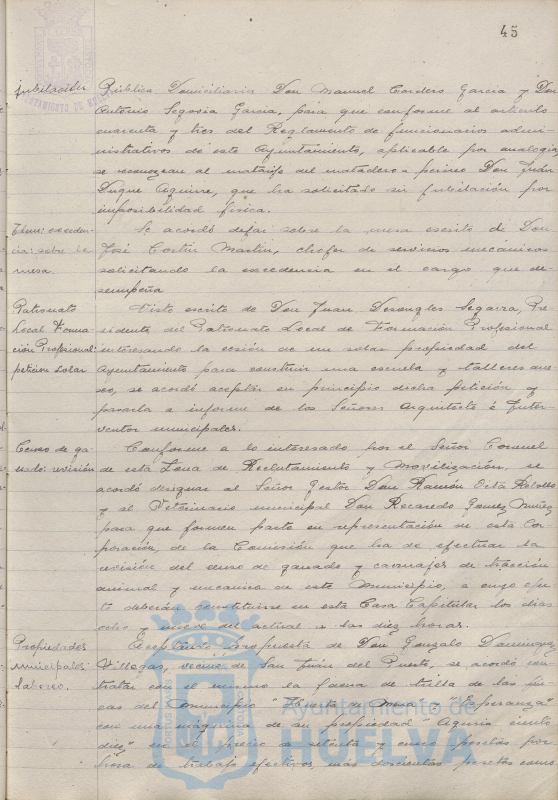 45
jubilación
Pública Domiciliaria Don Manuel Cordero García y Don
Antonio Segovia García, para que conforme al artículo
cuarenta y tres del Reglamento de funcionarios admi-
nistrativos de este Ayuntamiento, aplicable por analogía
se reconozcan al matarife del matadero Don Juan
Duque Aguirre, que ha solicitado su jubilación por
imposibilidad física.
Idem: exceden-
cia: sobre la
mesa.
Se acordó dejar sobre la mesa escrito de Don
José Martín, chofer de servicios mecánicos
solicitando la excedencia en el cargo que de-
sempeña
Patronato
Local Forma-
ción Profesional:
petición solar
Visto escrito de Don Juan Segarra, Pre-
sidente del Patronato Local de Formación Profesional
interesando la cesión de un solar propiedad del
Ayuntamiento para construir una escuela y talleres ane-
xos, se acordó aceptar en principio dicha petición y
pasarla a informe de los Señores Arquitecto é Inter-
ventor municipales.
Censo de ga-
nado: revisión
Conforme a lo interesado por el Señor Coronel
de esta Zona de Reclutamiento y Movilización, se
acordó designar al Señor Gestor Don Ramón
y al Veterinario municipal Don Recaredo Gomez Muñoz
para que formen parte en representación de esta Cor-
poración, de la Comisión que ha de efectuar la
revisión del censo de ganado y carruajes de tracción
animal y mecánica en este Municipio, a cuyo efec-
to deberán constituirse en esta Casa Capitular los días
ocho y nueve del actual a las diez horas.
Propiedades
municipales:
laboreo.
Aceptando propuesta de Don Gonzalo Dominguez
Villegas, vecino de San Juan del Puerto, se acordó con-
tratar con el mismo la faena de trilla de las fin-
cas del Municipio "Huerta de Mena" y "Esperanza"
con una máquina de su propiedad
en el precio de setenta y cinco pesetas por
hora de trabajo efectivo, más doscientas pesetas como
Ayuntamiento de
HUELVA